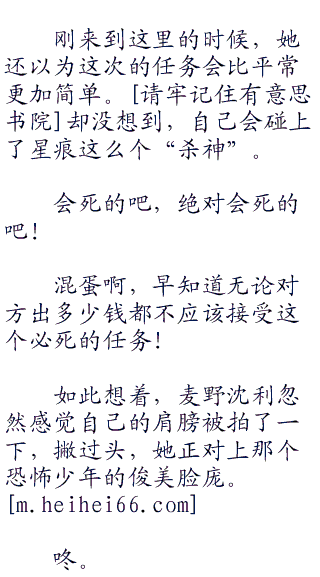 刚来到这里的时候，她
还以为这次的任务会比平常
更加简单。[请牢记住有意思
书院]却没想到，自己会碰上
了星痕这么个“杀神”。
会死的吧，绝对会死的
吧！
混蛋啊，早知道无论对
方出多少钱都不应该接受这
个必死的任务！
如此想着，麦野沈利忽
然感觉自己的肩膀被拍了一
下，撇过头，她正对上那个
恐怖少年的俊美脸庞。
[m.heihei66.com]
咚。